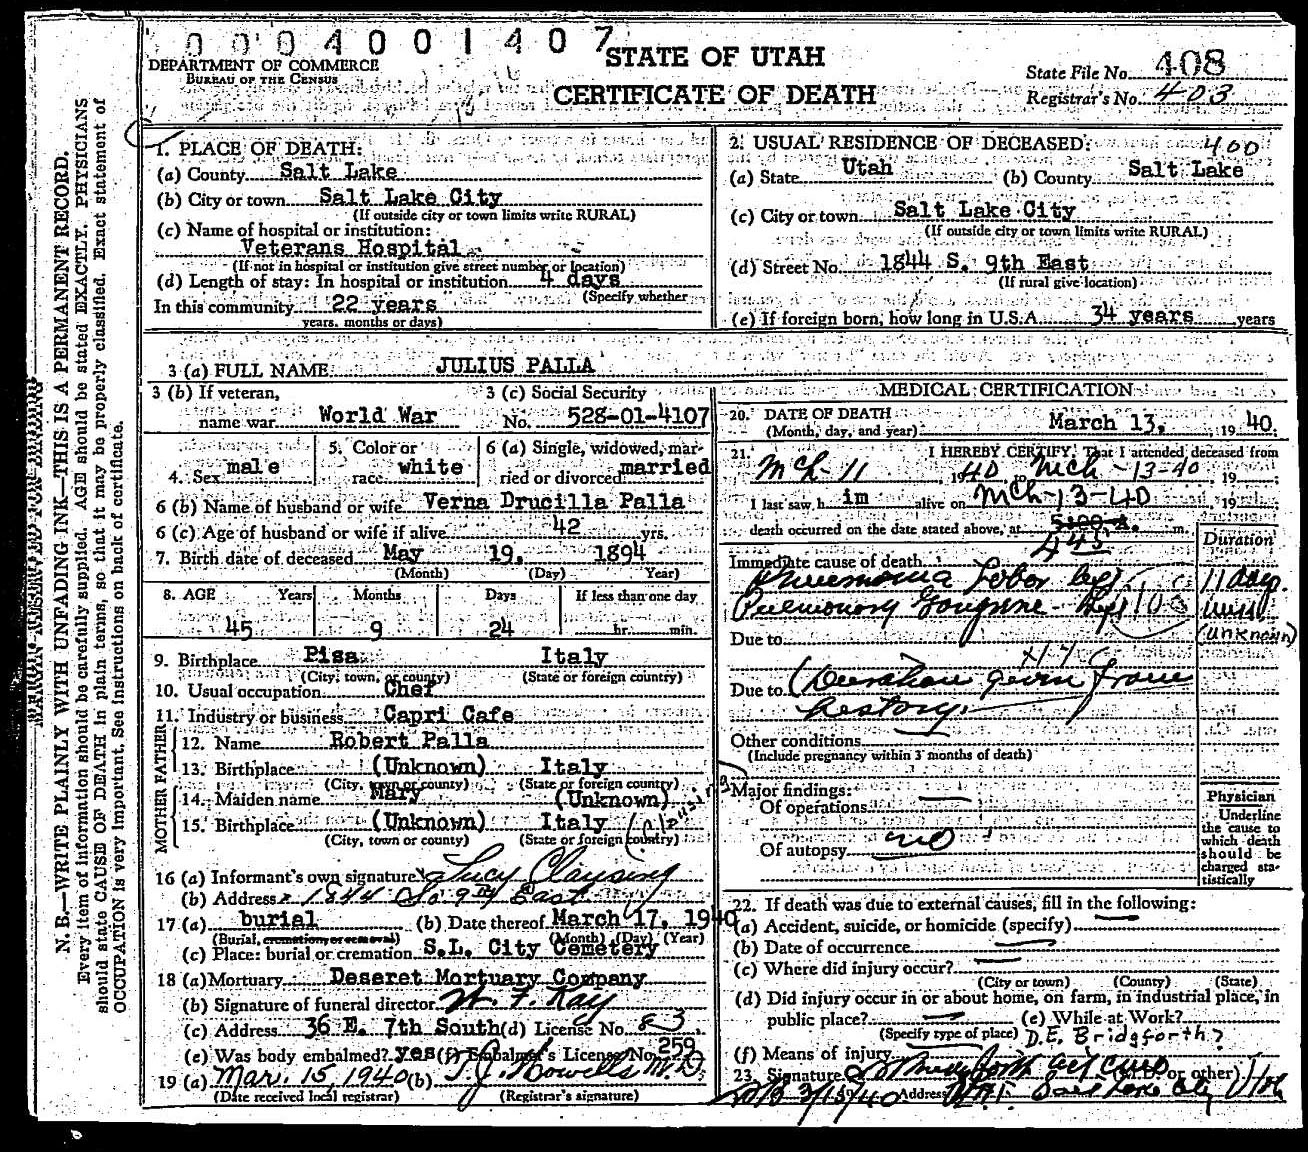 0 0 0 4 0 0 1 4 0 7
STATE OF UTAH
CERTIFICATE OF DEATH
DEPARTMENT OF COMMERCE
BUREAU OF THE CENSUS
State File No. 408
Registrar's No. 403
N. B.—WRITE PLAINLY WITH UNFADING INK—THIS IS A PERMANENT RECORD.
Every item of information should be carefully supplied. AGE should be stated EXACTLY. PHYSICIANS
should state CAUSE OF DEATH in plain terms, so that it may be properly classified. Exact statement of
OCCUPATION is very important. See instructions on back of certificate.
1. PLACE OF DEATH:
(a) County Salt Lake
(b) City or town Salt Lake City
(If outside city or town limits write RURAL)
(c) Name of hospital or institution:
Veterans Hospital
(If not in hospital or institution give street number or location)
(d) Length of stay: In hospital or institution 4 days
(Specify whether
In this community 22 years
years, months or days)
2. USUAL RESIDENCE OF DECEASED: 400
(a) State Utah (b) County Salt Lake
(c) City or town Salt Lake City
(If outside city or town limits write RURAL)
(d) Street No. 1844 S. 9th East
(If rural give location)
(e) If foreign born, how long in U.S.A. 34 years years
3 (a) FULL NAME JULIUS PALLA
3 (b) If veteran, 3 (c) Social Security
name war World War No. 528-01-4107
5. Color or 6 (a) Single, widowed, mar-
4. Sex male race white ried or divorced married
6 (b) Name of husband or wife Verna Drucilla Palla
6 (c) Age of husband or wife if alive 42 yrs.
7. Birth date of deceased May 19, 1894
(Month) (Day) (Year)
8. AGE Years Months Days If less than one day
45 9 24 hr. min.
9. Birthplace Pisa Italy
(City, town, or county) (State or foreign country)
10. Usual occupation Chef
11. Industry or business Capri Cafe
FATHER
12. Name Robert Palla
13. Birthplace (Unknown) Italy
(City, town or county) (State or foreign country)
MOTHER
14. Maiden name Mary (Unknown)
15. Birthplace (Unknown) Italy
(City, town or county) (State or foreign country)
(Clausing)
16 (a) Informant's own signature Lucy Clausing
(b) Address 1844 So 9th East
17 (a) burial (b) Date thereof March 17, 1940
(Burial, cremation, or removal) (Month) (Day) (Year)
(c) Place: burial or cremation S.L. City Cemetery
18 (a) Mortuary Deseret Mortuary Company
(b) Signature of funeral director W. F. Kay
(c) Address 36 E. 7th South (d) License No. 83
(e) Was body embalmed? yes (f) Embalmer's License No. 259
19 (a) Mar. 15, 1940 (b) T. J. Howells M.D.
(Date received local registrar) (Registrar's signature)
MEDICAL CERTIFICATION
20. DATE OF DEATH
(Month, day, and year) March 13, 19 40
21. I HEREBY CERTIFY, That I attended deceased from
Mch-11 1940 to Mch-13-40, 19
I last saw h im alive on Mch-13-40 19
death occurred on the date stated above, at 5:00 A. m.
445
Duration
Immediate cause of death
Pneumonia Lobar left 11 days
Pulmonary Gangrene - left
(unknown)
Due to
Due to (Duration given from
history.
Other conditions
(Include pregnancy within 3 months of death)
Major findings:
Of operations
Of autopsy no
Physician
Underline
the cause to
which death
should be
charged sta-
tistically
22. If death was due to external causes, fill in the following:
(a) Accident, suicide, or homicide (specify)
(b) Date of occurrence
(c) Where did injury occur?
(City or town) (County) (State)
(d) Did injury occur in or about home, on farm, in industrial place, in
public place? (e) While at Work?
(Specify type of place) D.E. Bridgforth?
(f) Means of injury
23. Signature (M.D. or other)
3/15/40 Address Salt Lake City Utah